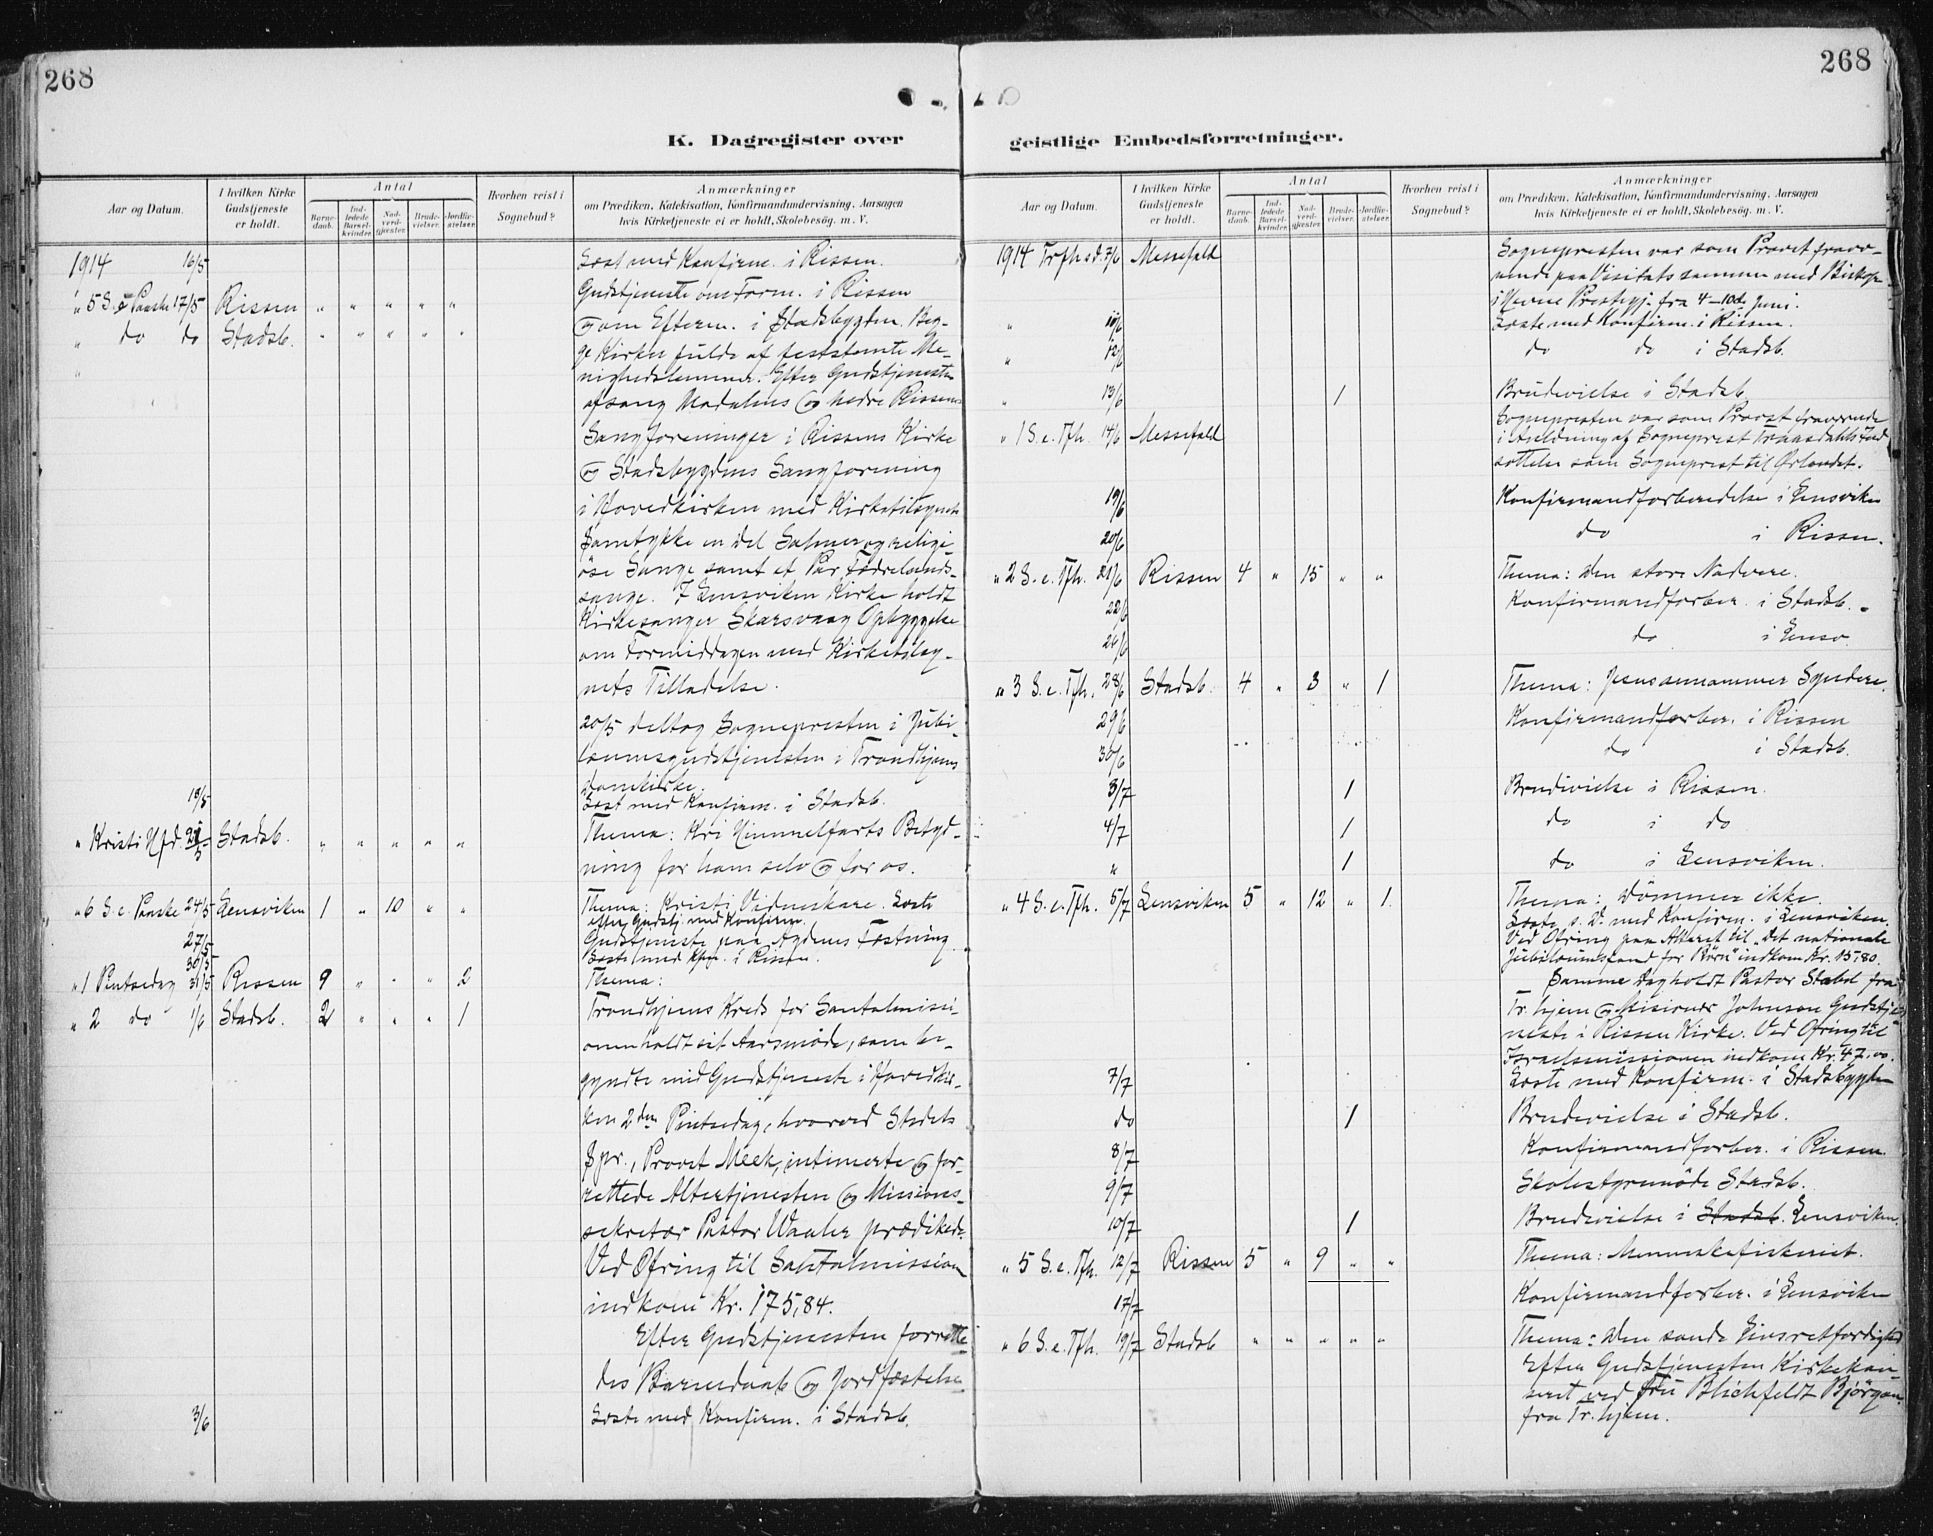 268
268
K. Dagregister over
geistlige Embedsforretninger.
Aar og Datum.
I hvilken Kirke Gudstjeneste er holdt.
Antal
Barne-daab.
Ind-ledede Barsel-kvinder.
Nad-verd-gjæster.
Brude-vielser.
Jordfæ-stelser.
Hvorhen reist i Sognebud?
Anmærkninger
om Prædiken, Katekisation, Konfirmandundervisning, Aarsagen
hvis Kirketjeneste ei er holdt, Skolebesøg. m. V.
1914 16/5 Læst med Konfirm. i Rissen.
Gudstjeneste om Form. i Rissen
" 5 S. e Paaske 17/5 Rissen " " " " "
og om Efterm. i Stadsbygden. Beg-
" do do Stadsb. " " " " "
ge Kirker fulde af feststemte Me-
nighedslemmer. Efter Gudstjenesten
afsang Madalens og nedre Rissens
Sangforeninger i Rissens Kirke
og Stadsbygdens Sangforening
i Hovedkirken med Kirketilsynets
Samtykke en del Salmer og religi-
øse Sange samt et Par Fædrelands-
sange. I Lensviken Kirke holdt
Kirkesanger Skarsvaag Opbyggelse
om Formiddagen med Kirketilsy-
nets Tilladelse.
20/5 deltog Sognepresten i Jubi-
læumsgudstjenesten i Trondhjems
Domkirke.
18/5 Læst med Konfirm. i Stadsb.
" Kristi Hfd. 21/5 Stadsb. " " " " " Thema: Kri Himmelfarts Betyd-
ning for ham selv og for os.
" 6 S. e. Paaske 24/5 Lensviken 1 " 10 " " Thema: Kristi Vidneskare. Læste
efter Gudstj. med Konfirm.
27/5 Gudstjeneste paa Agdenes Fæstning.
30/5 Læste med Kfm. i Rissen.
" 1 Pintsedag 31/5 Rissen 9 " " " 2 Thema:
" 2 do 1/6 Stadsb. 2 " " " 1 Trondhjems Kreds for Santalmissi-
onen holdt sit Aarsmøde, som be-
gyndte med Gudstjeneste i Hovedkir-
ken 2den Pintsedag, hvorved Stedets
Spr., Provst Meek, intimerte og for-
rettede Altertjenesten og Missions-
sekretær Pastor Waaler prædikede.
Ved Ofring til Santalmission
indkom Kr. 175,84.
Efter Gudstjenesten forrette-
des Barnedaab og Jordfæstelse
3/6 Læste med Konfirm. i Stadsb.
Aar og Datum.
I hvilken Kirke Gudstjeneste er holdt.
Antal
Barne-daab.
Ind-ledede Barsel-kvinder.
Nad-verd-gjæster.
Brude-vielser.
Jordfæ-stelser.
Hvorhen reist i Sognebud?
Anmærkninger
om Prædiken, Katekisation, Konfirmandundervisning, Aarsagen
hvis Kirketjeneste ei er holdt, Skolebesøg. m. V.
1914 Trefh.sd. 7/6 Messefald Sognepresten var som Provst fravæ-
rende paa Visitats sammen med Biskop
i Hevne Prestegj. fra 4-10de Juni.
" Læste med Konfirm. i Rissen.
" 12/6 do do i Stadsb.
" 13/6 1 Brudevielse i Stadsb.
" 1 S. e. Tfh. 14/6 Messefald Sognepresten var som Provst fraværende
i Anledning af Sogneprest Ind-
sættelse som Sogneprest til Ørlandet.
19/6 Konfirmandforberedelse i Lensviken
20/6 do i Rissen.
" 2 S. e. Tfh. 21/6 Rissen 4 " 15 " " Thema: Den store Nadvere.
22/6 Konfirmandforber. i Stadsb.
26/6 do i Lensv.
" 3 S. e. Tfh. 28/6 Stadsb. 4 " 3 " 1 Thema: Jesus annammer Syndere.
29/6 Konfirmandforber. i Rissen
30/6 do i Stadsb.
3/7 1 Brudevielse i Rissen.
4/7 1 do i do
" 1 do i Lensviken.
" 4 S. e. Tfh. 5/7 Lensviken 5 " 12 " 1 Thema: Dømmer ikke.
Læste s. D. med Konfirm. i Lensviken.
Ved Ofring paa Alteret til "Det nationale
Jubilæumsfond for Børn" indkom Kr. 15,80.
Samme Dag holdt Pastor Stabel fra
Tr.hjem og Misionær Johnson Gudstje-
neste i Rissen Kirke. Ved Ofring til
Israelsmissionen indkom Kr. 47.00.
7/7 Læste med Konfirm. i Stadsbygden
do 1 Brudevielse i Stadsb.
8/7 Konfirmandforber. i Rissen.
9/7 Skolestyremøde Stadsb.
10/7 1 Brudevielse i Stadsb. Lensviken.
" 5 S. e. Tfh. 12/7 Rissen 5 " 9 " " Thema: Menneskefiskeriet.
17/7 Konfirmandforber. i Lensviken
" 6 S. e. Tfh. 19/7 Stadsb " " " " " Thema: Den sande Livsretfærdighed
Efter Gudstjenesten Kirkekon-
sert ved Fru Blichfeldt Bjørgan
fra Tr.hjem.